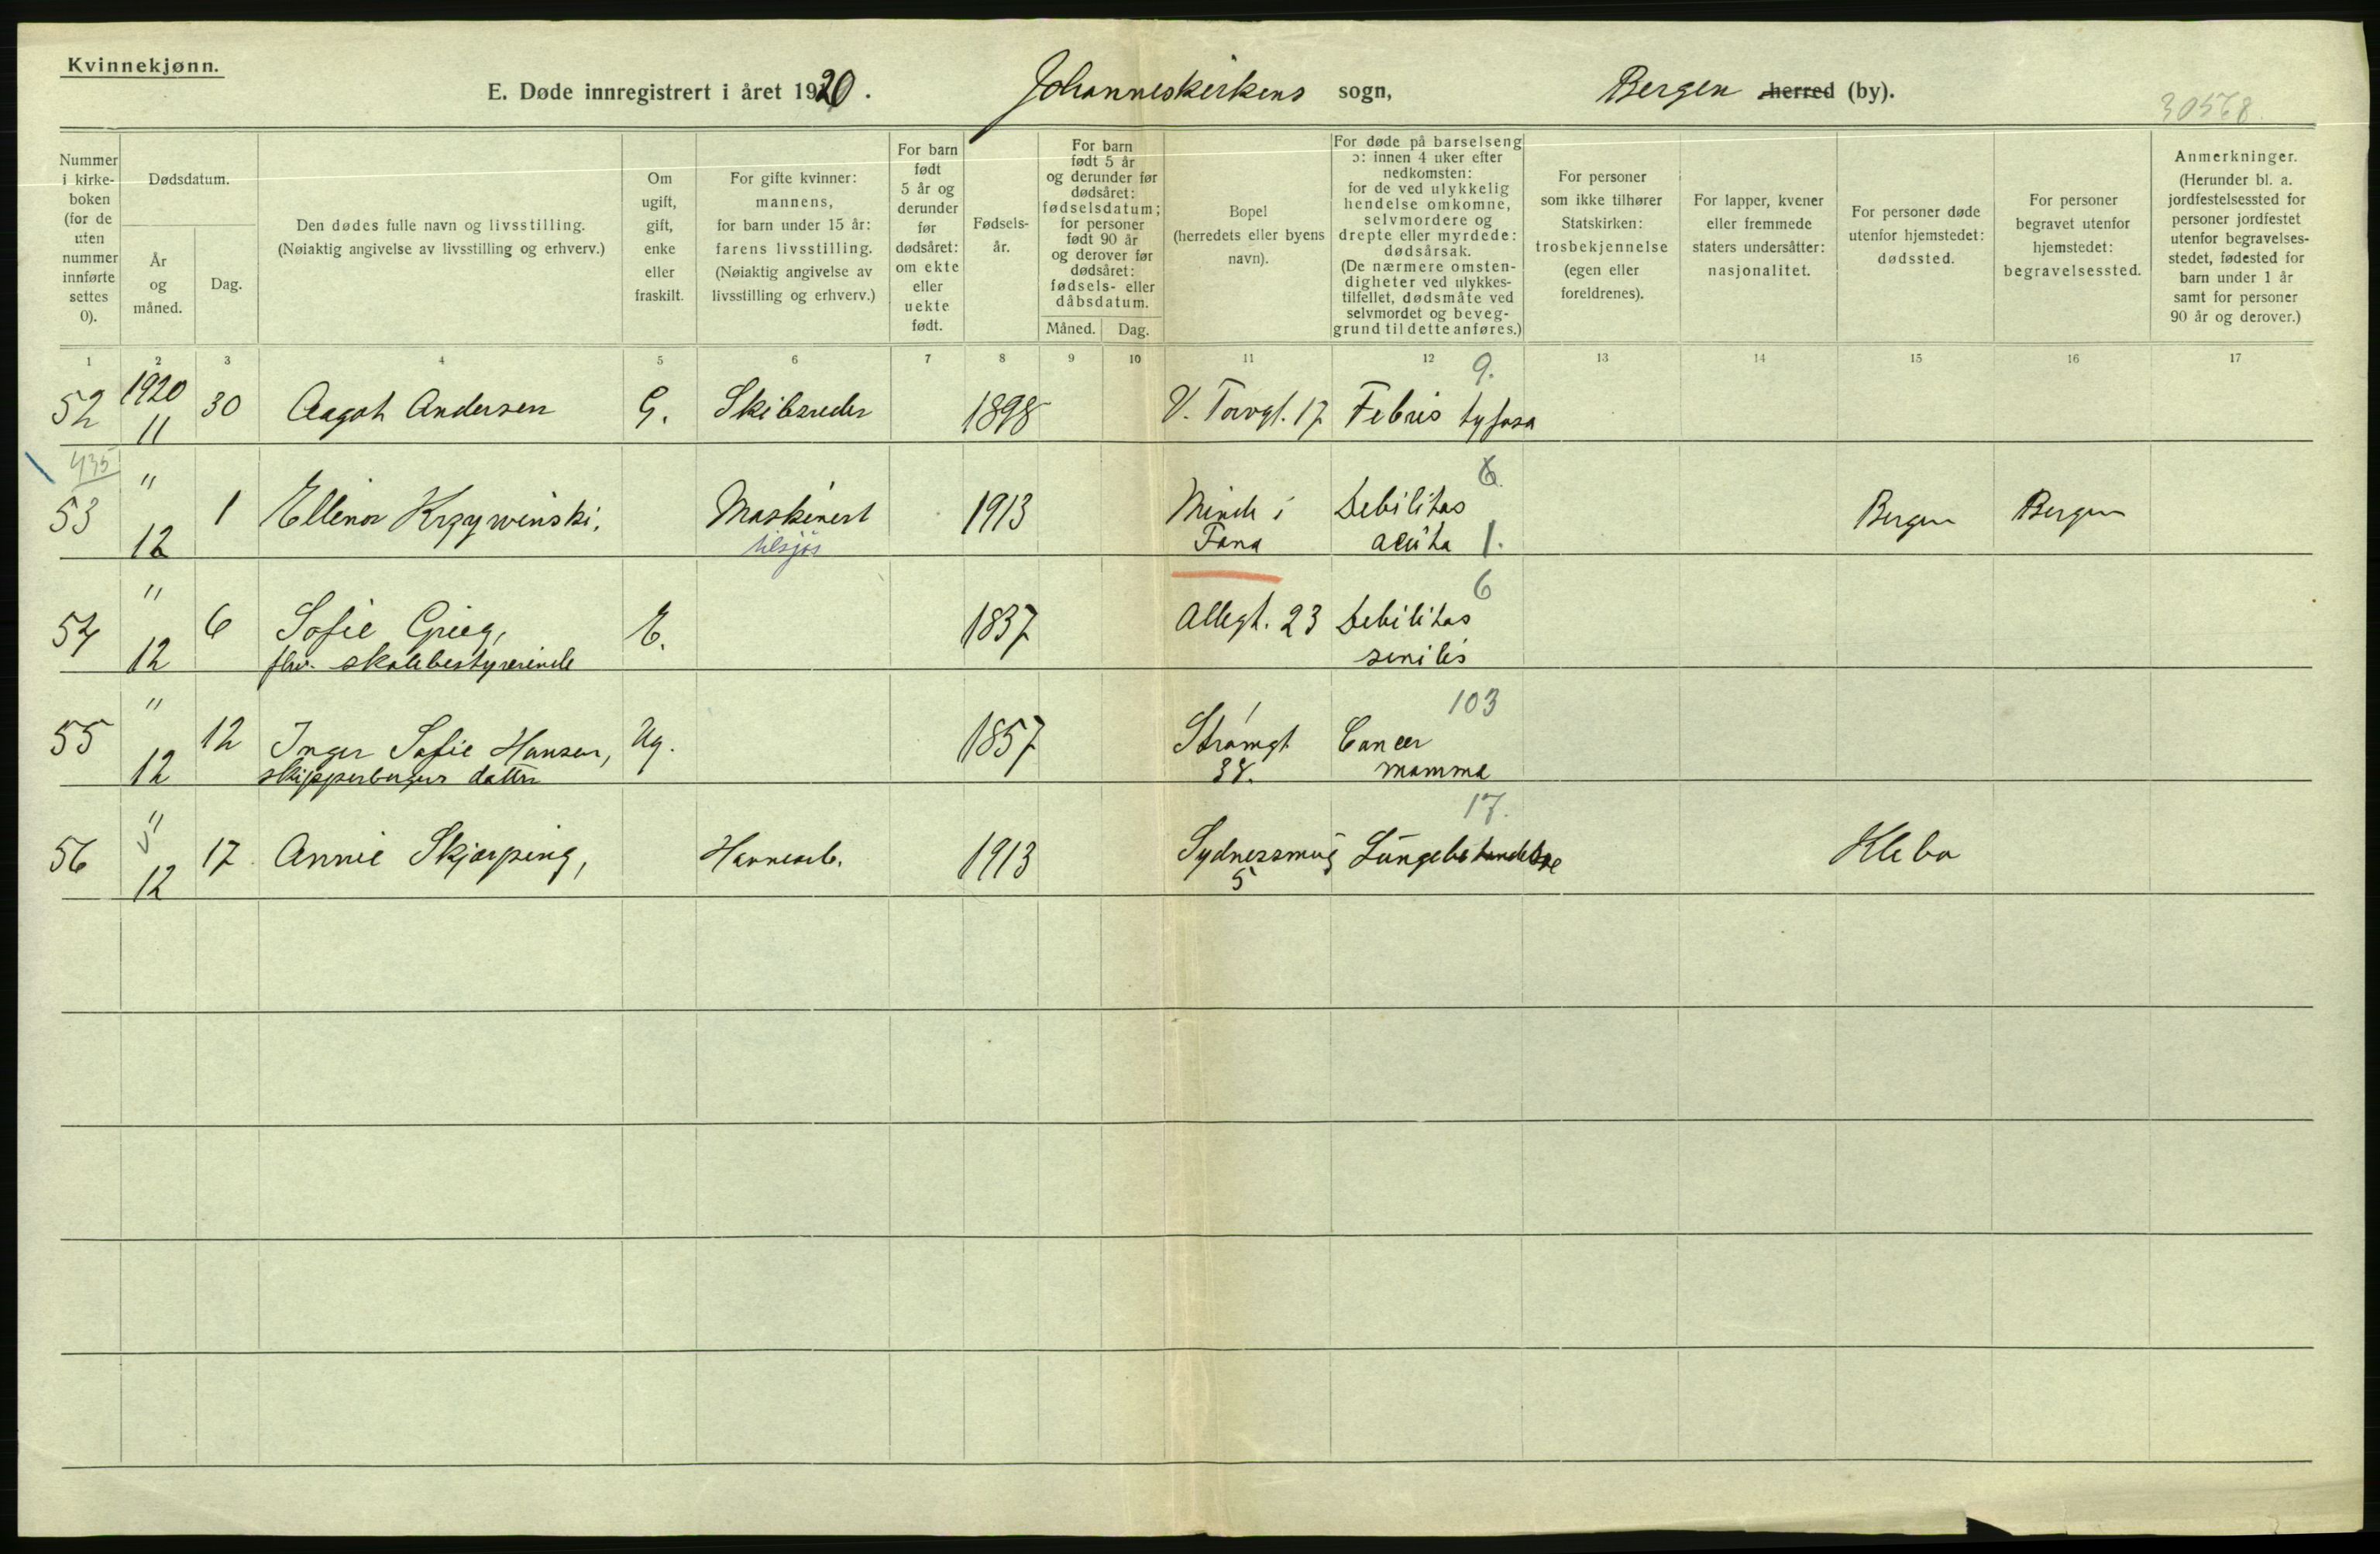 Kvinnekjønn.
E. Døde innregistrert i året 1920. Johanneskirkens sogn, Bergen herred (by).
30568.
Nummer i kirkeboken (for de uten nummer innførte settes 0).
Dødsdatum.
År og måned.
Dag.
Den dødes fulle navn og livsstilling.
(Nøiaktig angivelse av livsstilling og erhverv.)
Om ugift, gift, enke eller fraskilt.
For gifte kvinner: mannens, for barn under 15 år: farens livsstilling. (Nøiaktig angivelse av livsstilling og erhverv.)
For barn født 5 år og derunder før dødsåret: om ekte eller uekte født.
Fødsels-år.
For barn født 5 år og derunder før dødsåret: fødselsdatum; for personer født 90 år og derover før dødsåret: fødsels- eller dåbsdatum.
Måned. Dag.
Bopel (herredets eller byens navn).
For døde på barselseng ɔ: innen 4 uker efter nedkomsten: for de ved ulykkelig hendelse omkomne, selvmordere og drepte eller myrdede: dødsårsak. (De nærmere omstendigheter ved ulykkestilfellet, dødsmåte ved selvmordet og beveggrund til dette anføres.)
For personer som ikke tilhører Statskirken: trosbekjennelse (egen eller foreldrenes).
For lapper, kvener eller fremmede staters undersåtter: nasjonalitet.
For personer døde utenfor hjemstedet: dødssted.
For personer begravet utenfor hjemstedet: begravelsessted.
Anmerkninger. (Herunder bl. a. jordfestelsessted for personer jordfestet utenfor begravelsesstedet, fødested for barn under 1 år samt for personer 90 år og derover.)
1 2 3 4 5 6 7 8 9 10 11 12 13 14 15 16 17
9.
52 1920 11 30 Aagot Andersen G. Skibsreder 1898 V. Torvgt. 17 Febris tyfosa
435
6
53 " 12 1 Ellinor Krzywinski. Maskinist tilsjøs 1913 Minde i Fana Debilitas acuta 1. Bergen Bergen
6
54 " 12 6 Sofie Grieg, E. 1837 Allegt. 23 Debilitas senilis
fhv. skolebestyrerinde
103
55 " 12 12 Inger Sofie Hansen, Ug. 1857 Strømgt 38. Cancer mamma
skipperborgers datter
17.
56 " 12 17. Annie Skjærping, Havnearb. 1913 Sydnessmug 5 Lungebetændelse Klebo